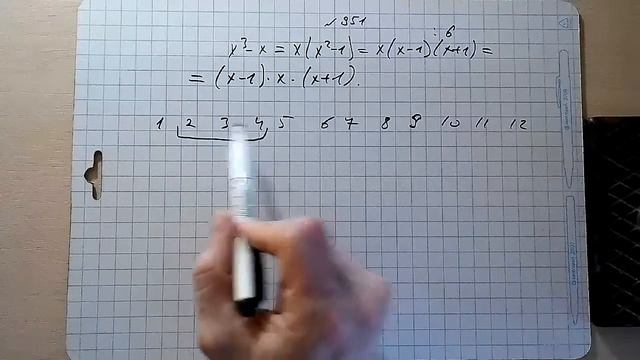 № 951
: 6
x³ - x = x(x² - 1) = x(x-1)(x+1) =
= (x-1) · x · (x+1).
1 2 3 4 5 6 7 8 9 10 11 12